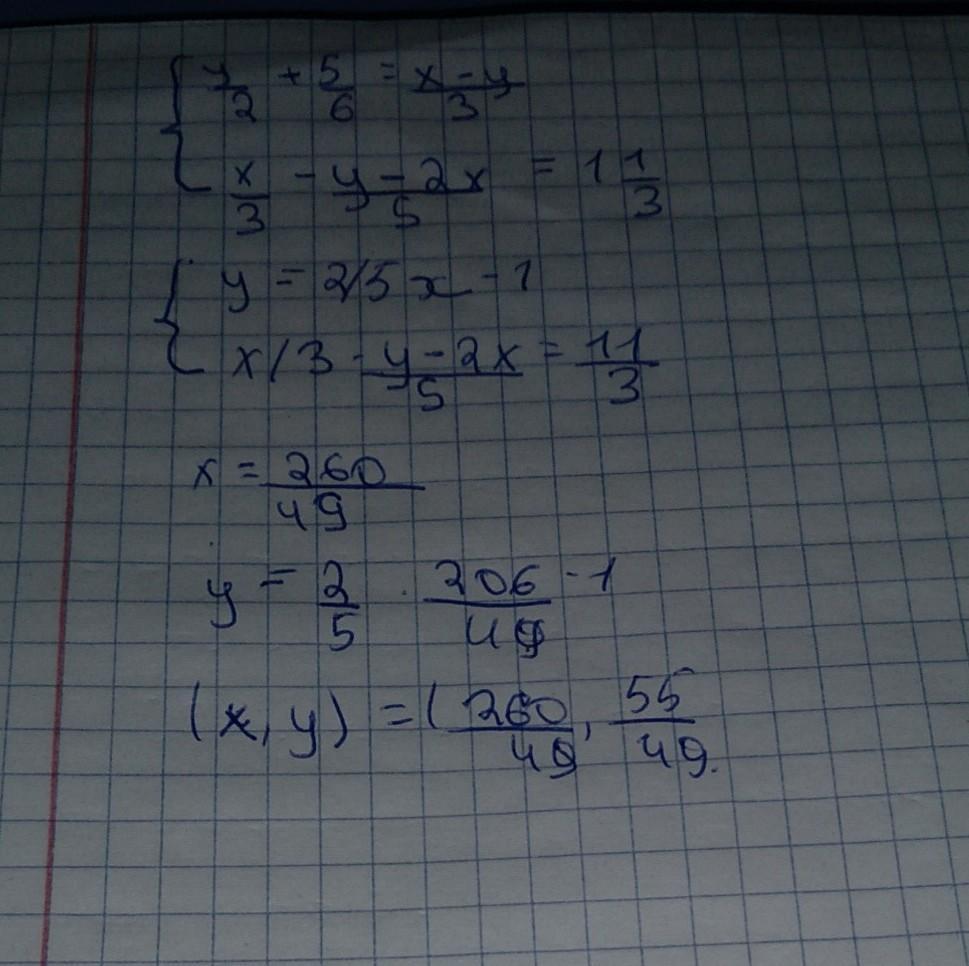 y/2 + 5/6 = x-y/3
x/3 - y-2x/5 = 1 1/3
y = 2/5 x - 1
x/3 - y-2x/5 = 11/3
x = 260/49
y = 2/5 · 206/49 - 1
(x, y) = (260/49, 55/49.